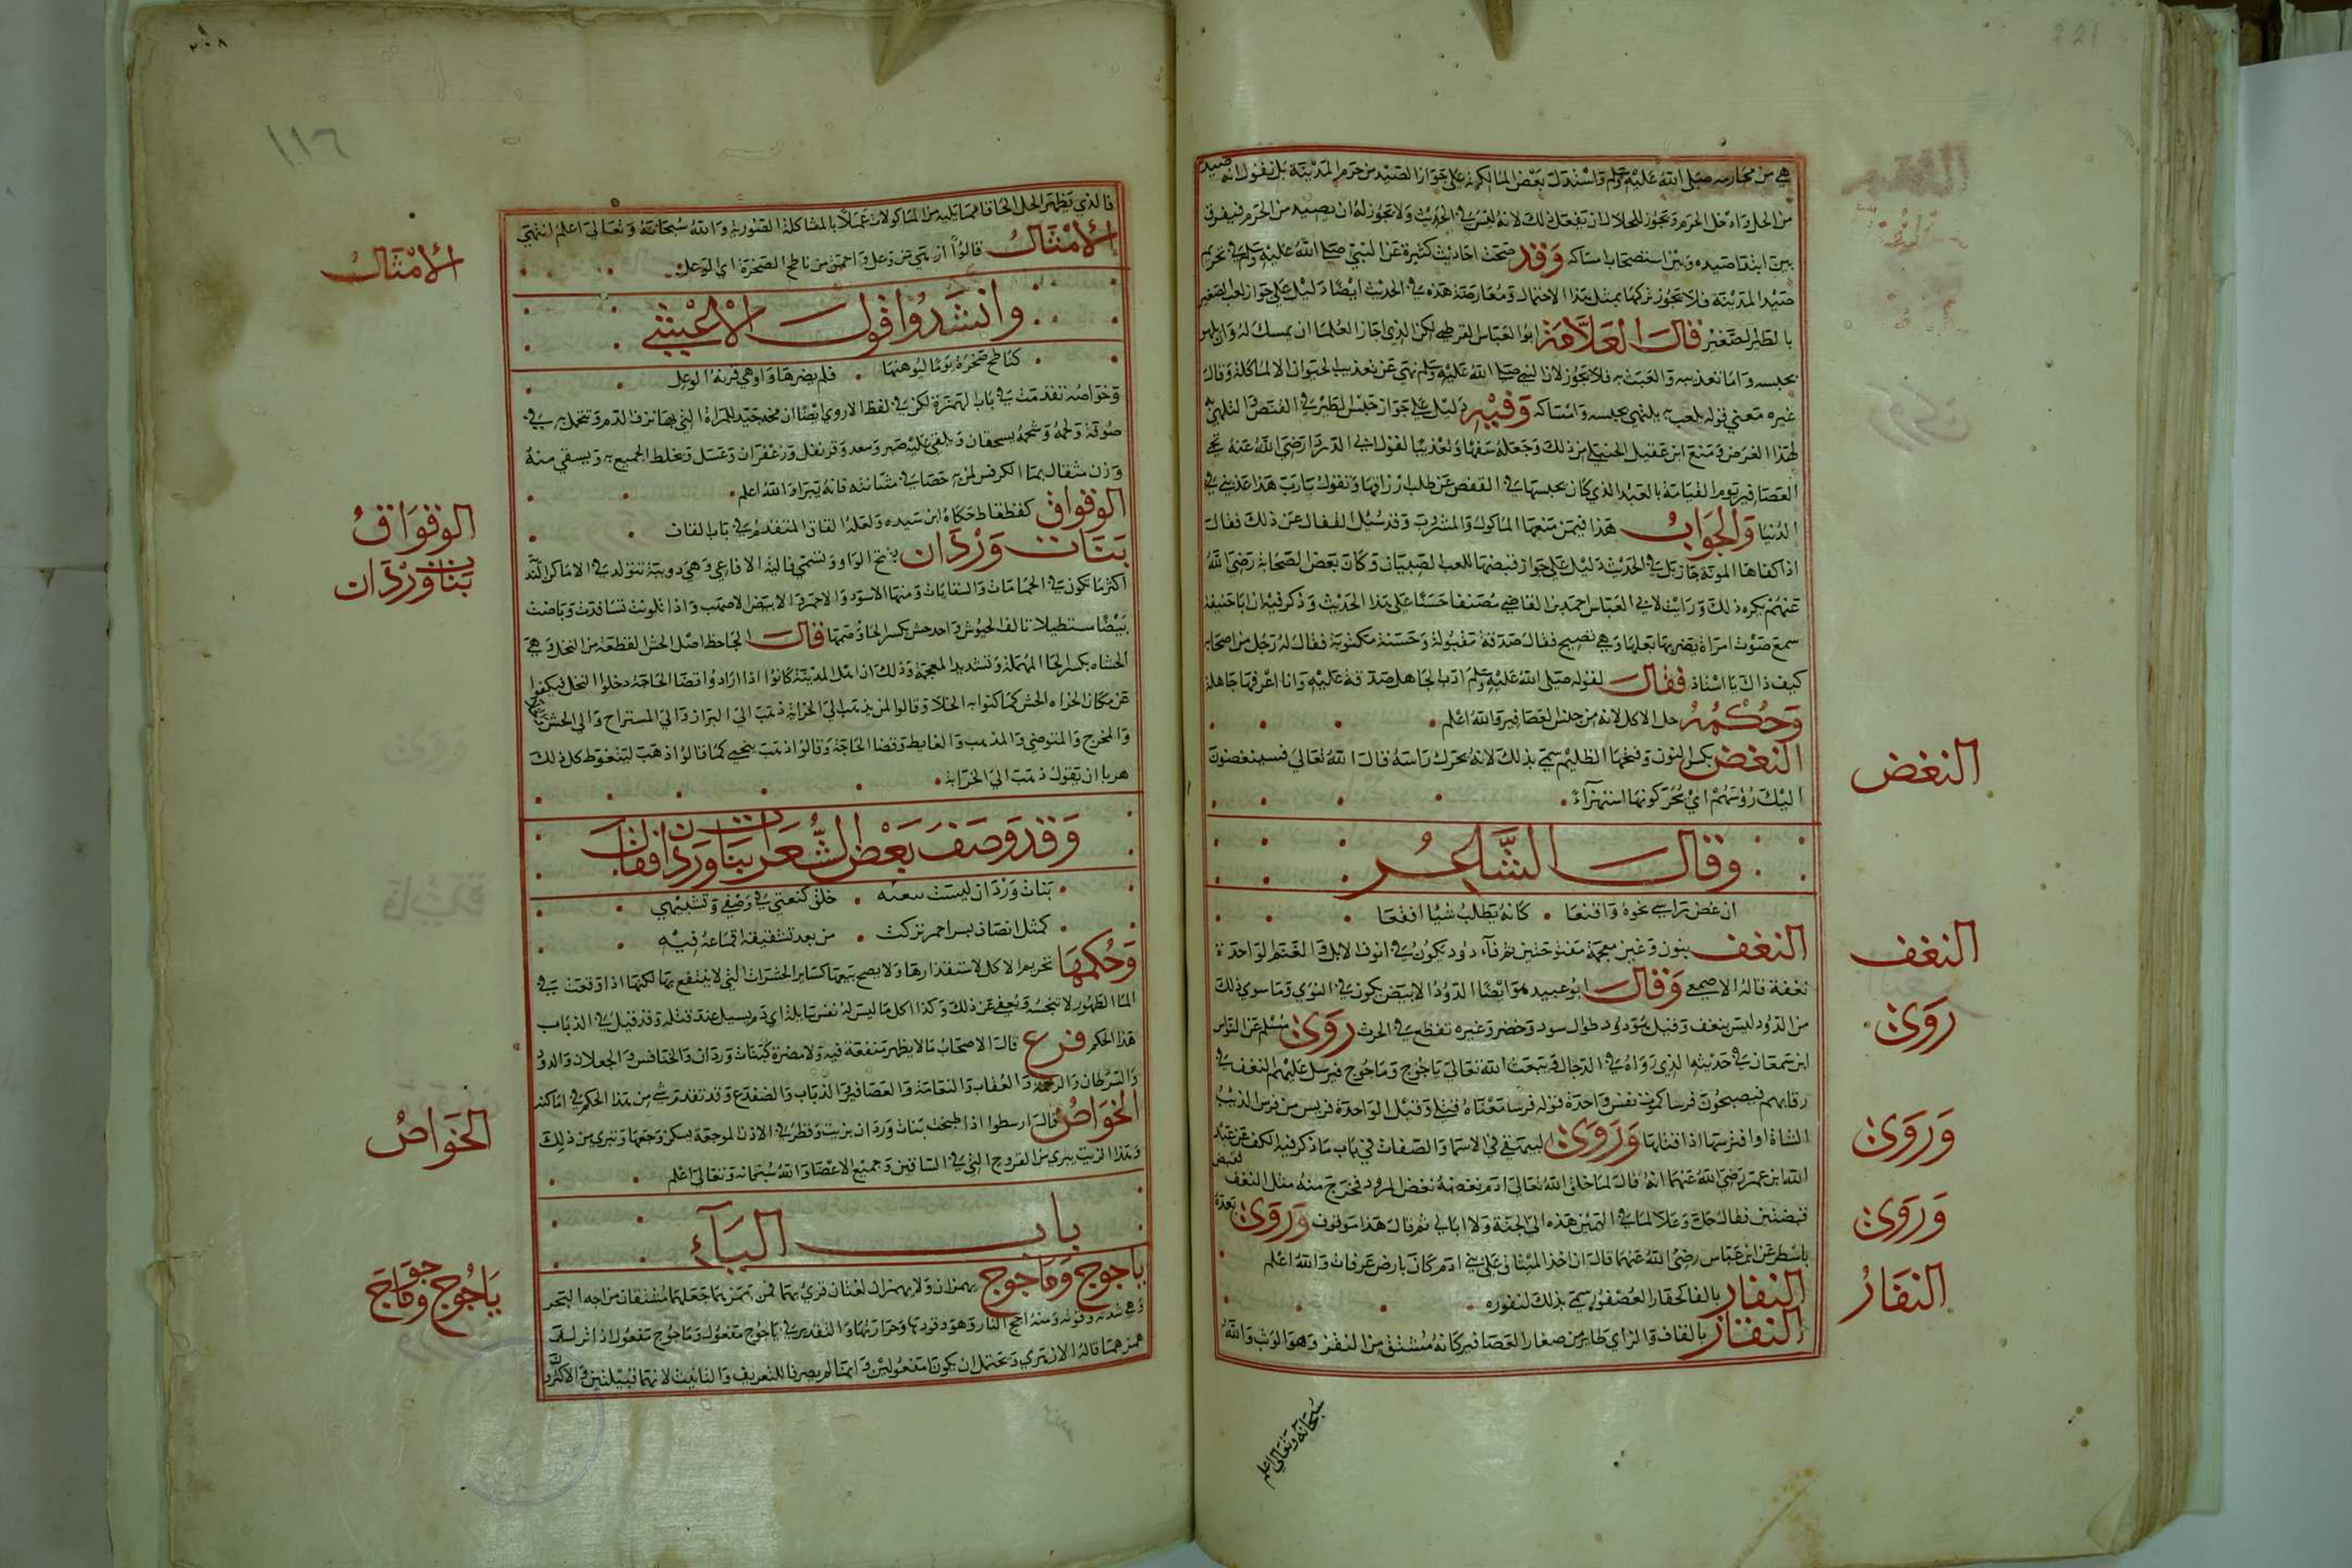 هي من محارمه صلى الله عليه وسلم واستدل بعض المالكية على جواز الصيد من حرم المدينة بل نقول انه صيد
من الحل وادخل الحرم ويجوز للحلال ان يفعل ذلك لانه ليس في الحديث ولا يجوز له ان يصيد من الحرم فيفرق
بين ابتدا صيده وبين استصحاب امساكه وقد صحت احاديث كثيرة عن النبي صلى الله عليه وسلم في تحريم
صيد المدينة فلا يجوز تركها بمثل هذا الاحتمال ومعارضته هذه في الحديث ايضا دليل على جواز لعب الصغير
بالطير الصغير قال العلامة ابو العباس القرطبي لكن الذي اجاز العلما ان يمسك له وان يلهو
بحبسه واما تعذيبه والعبث به فلا يجوز لان النبي صلى الله عليه وسلم نهى عن تعذيب الحيوان الا لماكلة وقال
غيره معنى قوله يلعب به يلتهي بحبسه وامساكه وفيه دليل على جواز حبس الطير في القفص والتلهي به
لهذا الغرض ومنع ابن عقيل الحنبلي من ذلك وجعله سفها وتعذيبا لقول ابي الدردا رضي الله عنه تجي
العصافير يوم القيامة بالعبد الذي كان يحبسها في القفص عن طلب ارزاقها وتقول يا رب هذا عذبني في
الدنيا والجواب هذا فيمن منعها الماكول والمشروب وقد سئل القفال عن ذلك فقال
اذا كفاها المونة جاز بل في الحديث دليل على جواز قبضها للعب الصبيان وكان بعض الصحابة رضي الله
عنهم يكره ذلك ورايت لابي العباس احمد بن القاضي مصنفا حسنا على هذا الحديث وذكر فيه ان ابا حنيفة
سمع صوت امراة يضربها بعلها وهي تصيح فقال صدقة مقبولة وحسنة مكتوبة فقال له رجل من اصحابه
كيف ذاك يا استاذ فقال لقوله صلى الله عليه وسلم ادب الجاهل صدقة عليه وانا اعرفها جاهلة
وحكمه حل الاكل لانه من جنس العصافير والله اعلم
النغض بكسر النون وفتحها الظليم سمي بذلك لانه يحرك راسه قال الله تعالى فسينغضون
اليك رؤسهم اي يحركونها استهزاء
وقال الشاعر
انغض راسي نحوه واقنعا كانه يطلب شيا اقنعا
النغف بنون وغين معجمة مفتوحتين ثم فآء دود يكون في انوف الابل والغنم الواحدة
نغفة قاله الاصمعي وقال ابو عبيد هو ايضا الدود الابيض يكون في النوي وما سوي ذلك
من الدود ليس بنغف وقيل هو دود طوال سود وخضر وغيره تقطع في الحرث روى مسلم عن النواس
ابن سمعان في حديثه الذي رواه في الدجال ويبعث الله تعالى ياجوج وماجوج فيرسل عليهم النغف في
رقابهم فيصبحون فرسا كموت نفس واحدة قوله فرسا معناه قتلى وقيل الواحدة فريس من فرس الذئب
الشاة او افترسها اذا قتلها وروى البيهقي في الاسما والصفات في باب ما ذكر في الكف عن عبد
الله ابن عمر رضي الله عنهما انه قال لما خلق الله تعالى ادم نغضه نغض المزود فخرج منه مثل النغف فقبض
قبضتين فقال جل وعلا لما في اليمين هذه الى الجنة ولا ابالي ثم قال هذا موقوف وروى بعده
باسطر عن ابن عباس رضي الله عنهما قال ان اخذ الميثاق على بني ادم كان بارض عرفات والله اعلم
النفار بالفا كحفار العصفور سمي بذلك لنفوره
النقاز بالقاف والزاي طاير من صغار العصافير كانه مشتق من النقز وهو الوثب والله
سبحانه وتعالى اعلم
النغض
النغف
روى
وروى
وروى
النفار
٢٠٨
١١٦
فالذي يظهر الحل الحاقا مما يليه من الماكولات عملا بالمشاكلة الصورية والله سبحانه وتعالى اعلم انتهى
الامثال قالوا از هي من وعل واحمق من ناطح الصخرة اي الوعل
وانشدوا قول الاعيشي
كناطح صخرة يوما ليوهنها فلم يضرها واوهي قرنه الوعل
وخواصه تقدمت في باب الهمزة لكن في لفظ الاروي ايضا ان مخه جيد للمراة التي بها نزف الدم وتتحمل به في
صوفة ولحمه وشحمه يسحقان ويلقى عليه صبر وسعد وقرنفل وزعفران وعسل ويخلط الجميع به ويسقي منه
وزن مثقال بما الكرفس لمن به حصا في مثانته فانه يبرا والله اعلم
الوقواق كفطفاط حكاه ابن سيده ولعله القاق المتقدم في باب القاف
بنات وردان بفتح الواو وتسمي فالية الافاعي وهي دويبة تتولد في الاماكن الندية
اكثر ما تكون في الحمامات والسقايات ومنها الاسود والاحمر والابيض الاصهب واذا تلونت تسافدت وباضت
بيضا مستطيلا تالف الحشوش واحد حش بكسر الحا وضمها فقال الجاحظ اصل الحش القطعة من النخل وهي
الحشاه بكسر الحا المهملة وتشديد المعجمة وذلك ان اهل المدينة كانوا اذا ارادوا قضا الحاجة دخلوا النخل فيكفوا
عن مكان الخراه الحش كما كنوا به الخلا وقالوا لمن يذهب الى الخراة ذهب الى البراز والى المستراح والى الحش
والمخرج والمتوضي والمذهب والغايط وقضا الحاجة وقالوا ذهب ينجي كما قالوا ذهب ليتغوط كل ذلك
هربا ان يقول ذهب الى الخراية
وقد وصف بعض الشعرا بنات وردان فقال
بنات وردان ليست بيعنه خلق كنعتي في وصفي وتشبيهي
كمثل انصاف بسر احمر تركت من بعد تشقيقه اقماعه فيه
وحكمها تحريم الاكل لاستقذارها ولا يصح بيعها كساير الحشرات التي لا ينتفع بها لكنها اذا وقعت في
الما الطهور لا تنجسه ويعفى عن ذلك وكذا كل ما ليس له نفس سايلة اي دم يسيل عند قتله وقد قيل في الذباب
هذا الحكم فرع قال الاصحاب ما لا يظهر منفعة فيه ولا مضرة كبنات وردان والخنافس والجعلان والدود
والسرطان والرخمة والعقاب والنعامة والعصافير والذباب والضفدع وقد تقدم شي من هذا الحكم في اماكنه
الخواص قال ارسطوا اذا طبخت بنات وردان بزيت وقطر في الاذن الموجعة يسكن وجعها وتبري من ذلك
وهذا الزيت يبري من القروح التي في الساقين وجميع الاعضا والله سبحانه وتعالى اعلم
باب اليآء
ياجوج وماجوج يهمزان ولا يهمزان لغتان قري بهما فمن همزهما جعلهما مشتقان من اجه الحر
وهي شدته وقوته ومنه اجيج النار وهو وقودها وحرارتها والتقدير في ياجوج مفعول وماجوج مفعول
همزهما قاله الازهري ويحتمل ان يكونا مفعولين وانما لم يصرفا للتعريف والتانيث لانهما قبيلتين والاكثرون
الامثال
الوقواق
بنات وردان
الخواص
ياجوج وماجوج